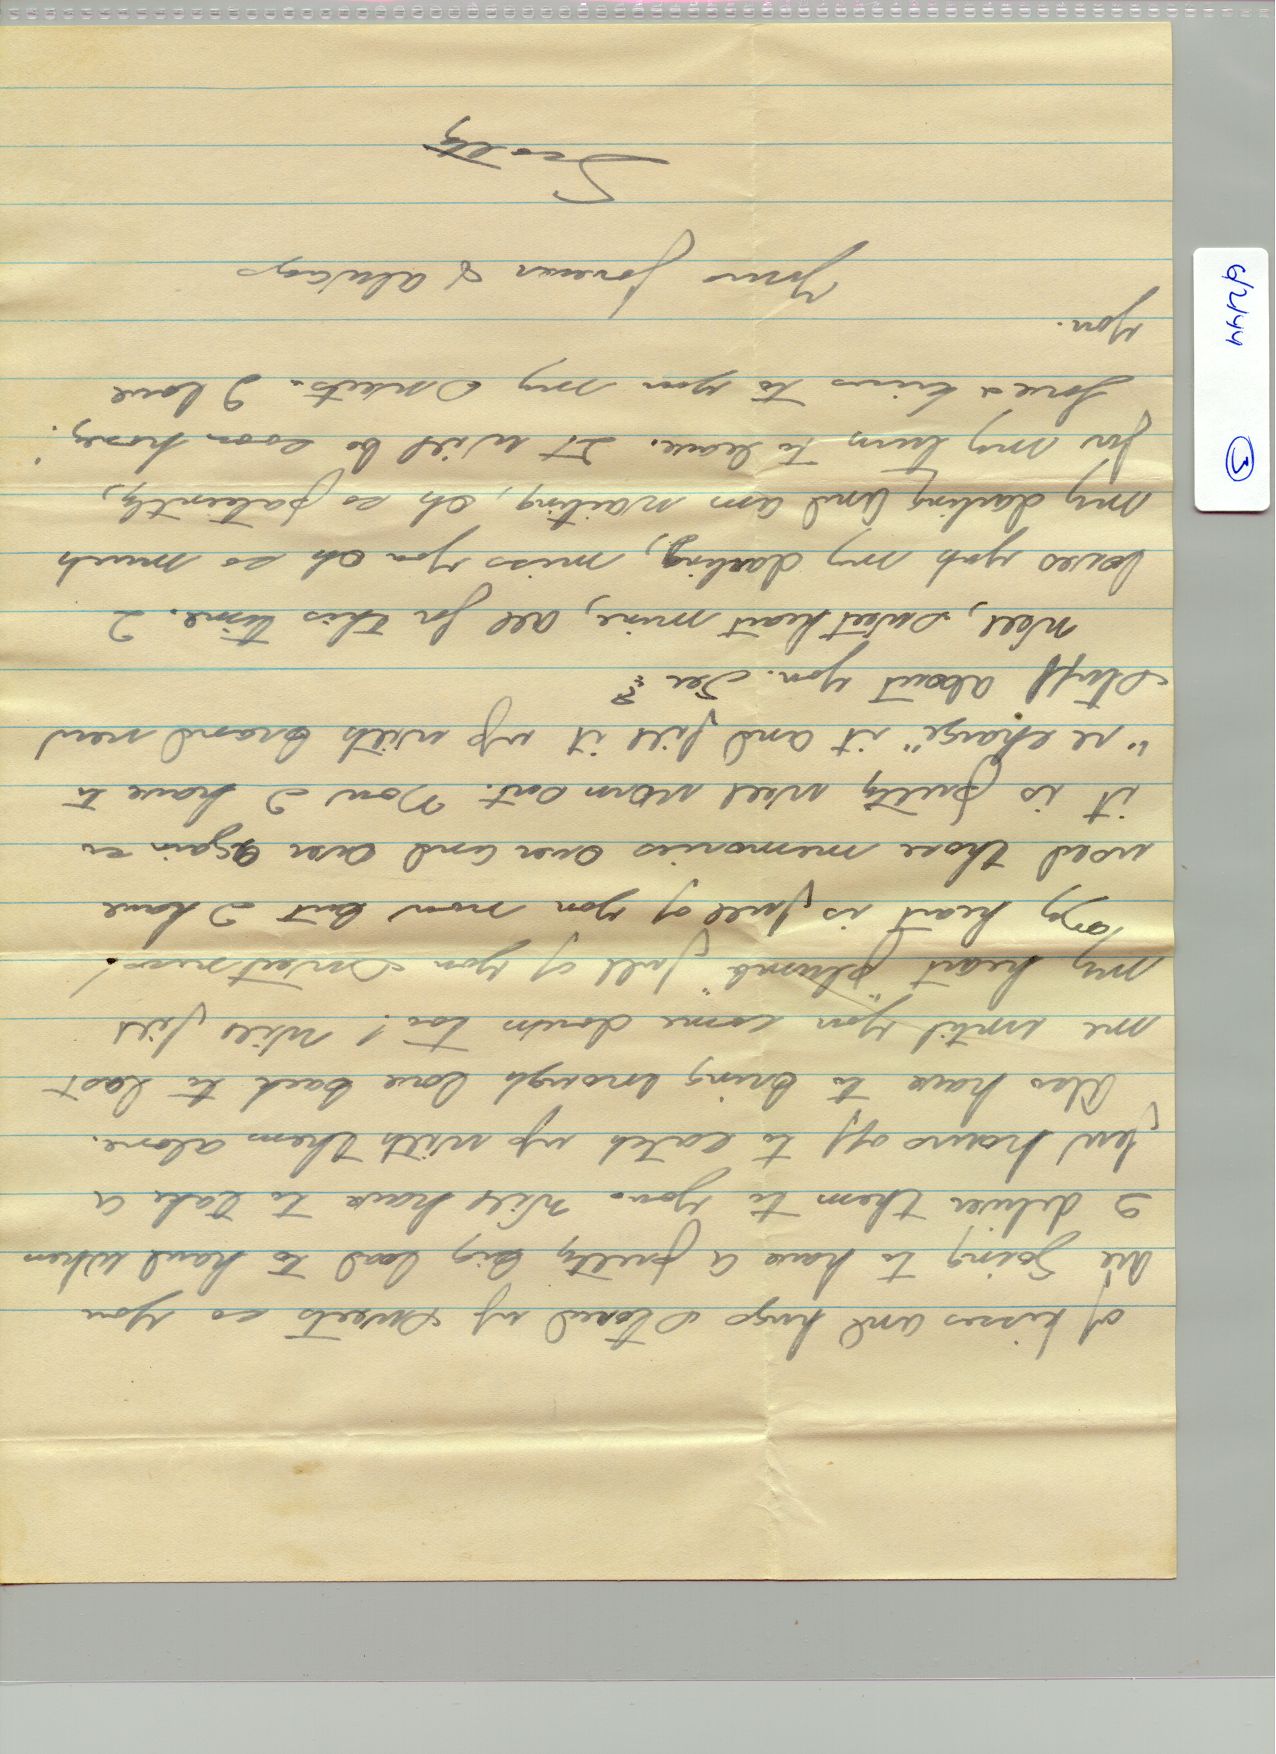 of kisses and hugs stored up sweets so you
are going to have a pretty big load to haul when
I deliver them to you. Will have to take a
few hours off to catch up with them alone.
Also have to bring enough love back to last
me until you come down too! Will fill
my heart "plumb" full of you sweetness!
My heart is full of you now but I have
used those memories over and over again so
it is pretty well worn out. Now I have to
"re charge" it and fill it up with brand new
stuff about you. See??
Well, sweetheart mine, all for this time. I
loves yuh my darling, miss you oh so much
my darling and am waiting, oh so patiently,
for my turn to leave. It will be soon honey!
Love & kisses to you my sweets. I love
you.
Yours forever & always
Scotty
6/2/44
3